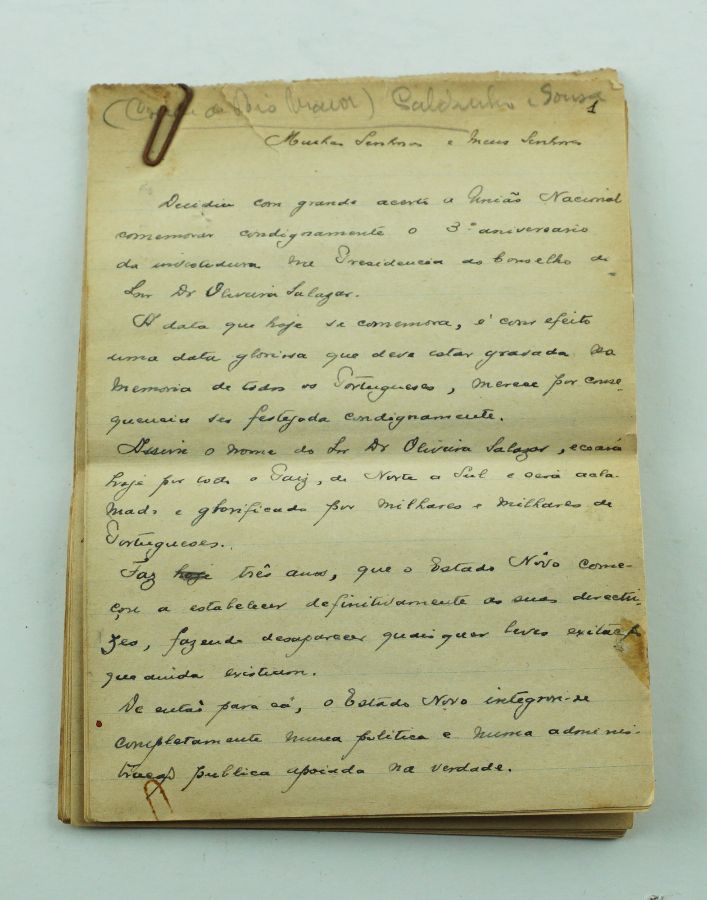 ( de Rio Maior) e Sousa
1
Minhas Senhoras e Meus Senhores
Decidiu com grande acerto a União Nacional
comemorar condignamente o 3º aniversario
da investidura na Presidencia do Conselho do
Snr Dr Oliveira Salazar.
A data que hoje se comemora, é com efeito
uma data gloriosa que deve estar gravada na
memoria de todos os Portugueses, merece por conse-
quencia ser festejada condignamente.
Assim o nome do Snr Dr Oliveira Salazar, ecoará
hoje por todo o Paiz, de Norte a Sul e será acla-
mado e glorificado por milhares e milhares de
Portugueses.
Faz hoje três anos, que o Estado Nôvo come-
çou a estabelecer definitivamente as suas directri-
zes, fazendo desaparecer quaisquer leves
que ainda existiam.
De então para cá, o Estado Novo integrou-se
completamente numa politica e numa adminis-
tração publica apoiada na verdade.